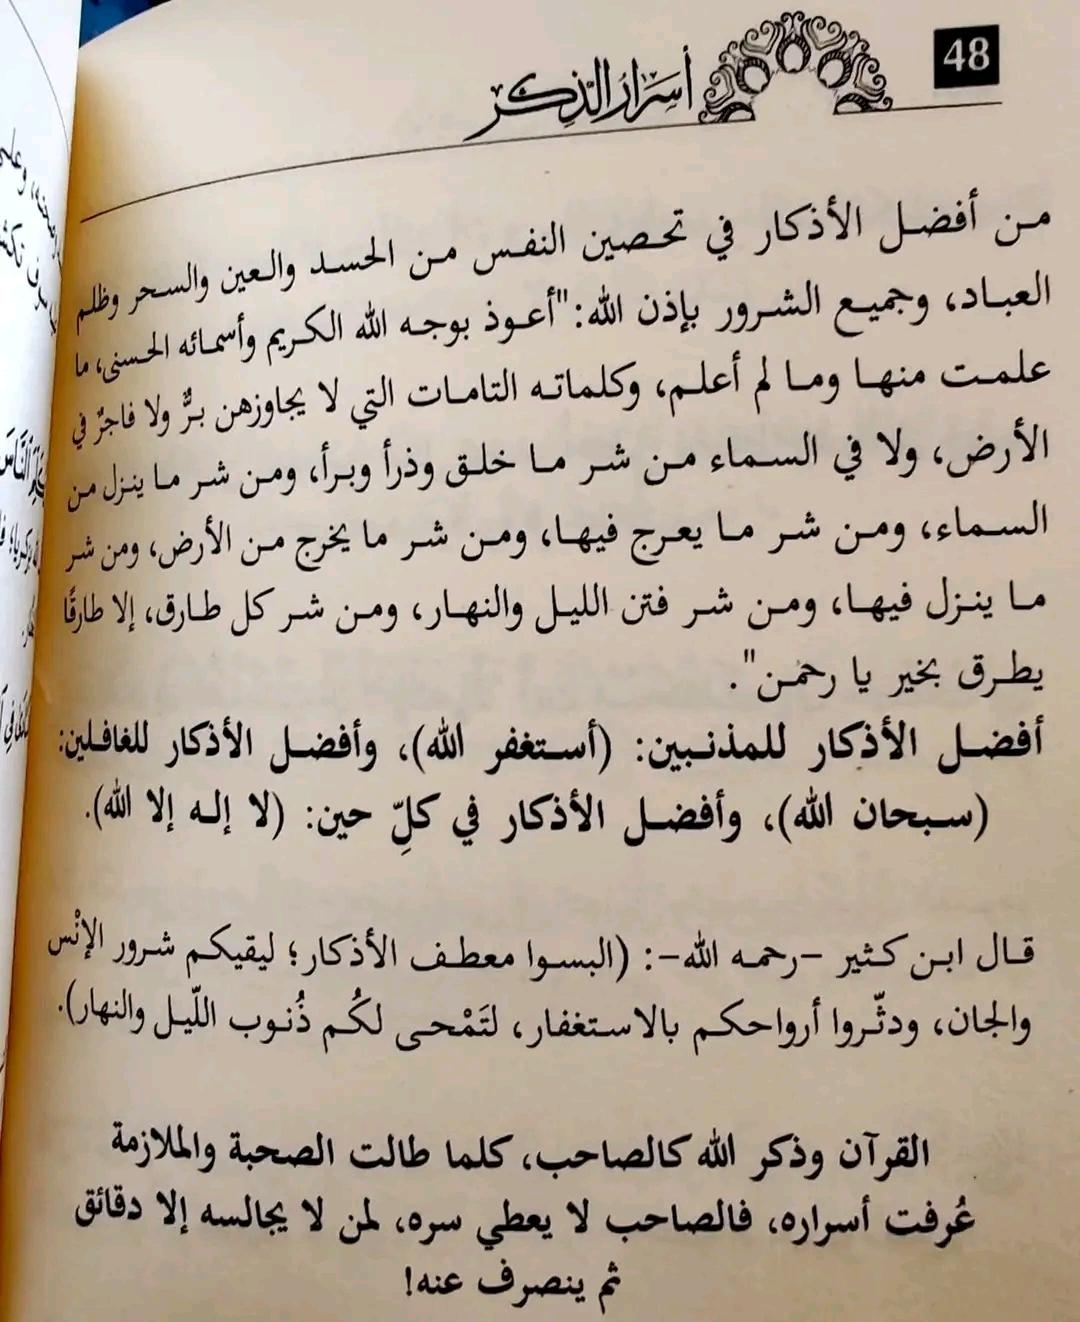 48
أسرار الذكر
من أفضل الأذكار في تحصين النفس من الحسد والعين والسحر وظلم
العباد، وجميع الشرور بإذن الله: "أعوذ بوجه الله الكريم وأسمائه الحسنى، ما
علمت منها وما لم أعلم، وكلماته التامات التي لا يجاوزهن برٌّ ولا فاجرٌ في
الأرض، ولا في السماء من شر ما خلق وذرأ وبرأ، ومن شر ما ينزل من
السماء، ومن شر ما يعرج فيها، ومن شر ما يخرج من الأرض، ومن شر
ما ينزل فيها، ومن شر فتن الليل والنهار، ومن شر كل طارق، إلا طارقًا
يطرق بخير يا رحمن".
أفضل الأذكار للمذنبين: (أستغفر الله)، وأفضل الأذكار للغافلين:
(سبحان الله)، وأفضل الأذكار في كلّ حين: (لا إله إلا الله).
قال ابن كثير –رحمه الله–: (البسوا معطف الأذكار؛ ليقيكم شرور الإنْس
والجان، ودثّروا أرواحكم بالاستغفار، لتَمْحى لكُم ذُنوب اللّيل والنهار).
القرآن وذكر الله كالصاحب، كلما طالت الصحبة والملازمة
عُرفت أسراره، فالصاحب لا يعطي سره، لمن لا يجالسه إلا دقائق
ثم ينصرف عنه!